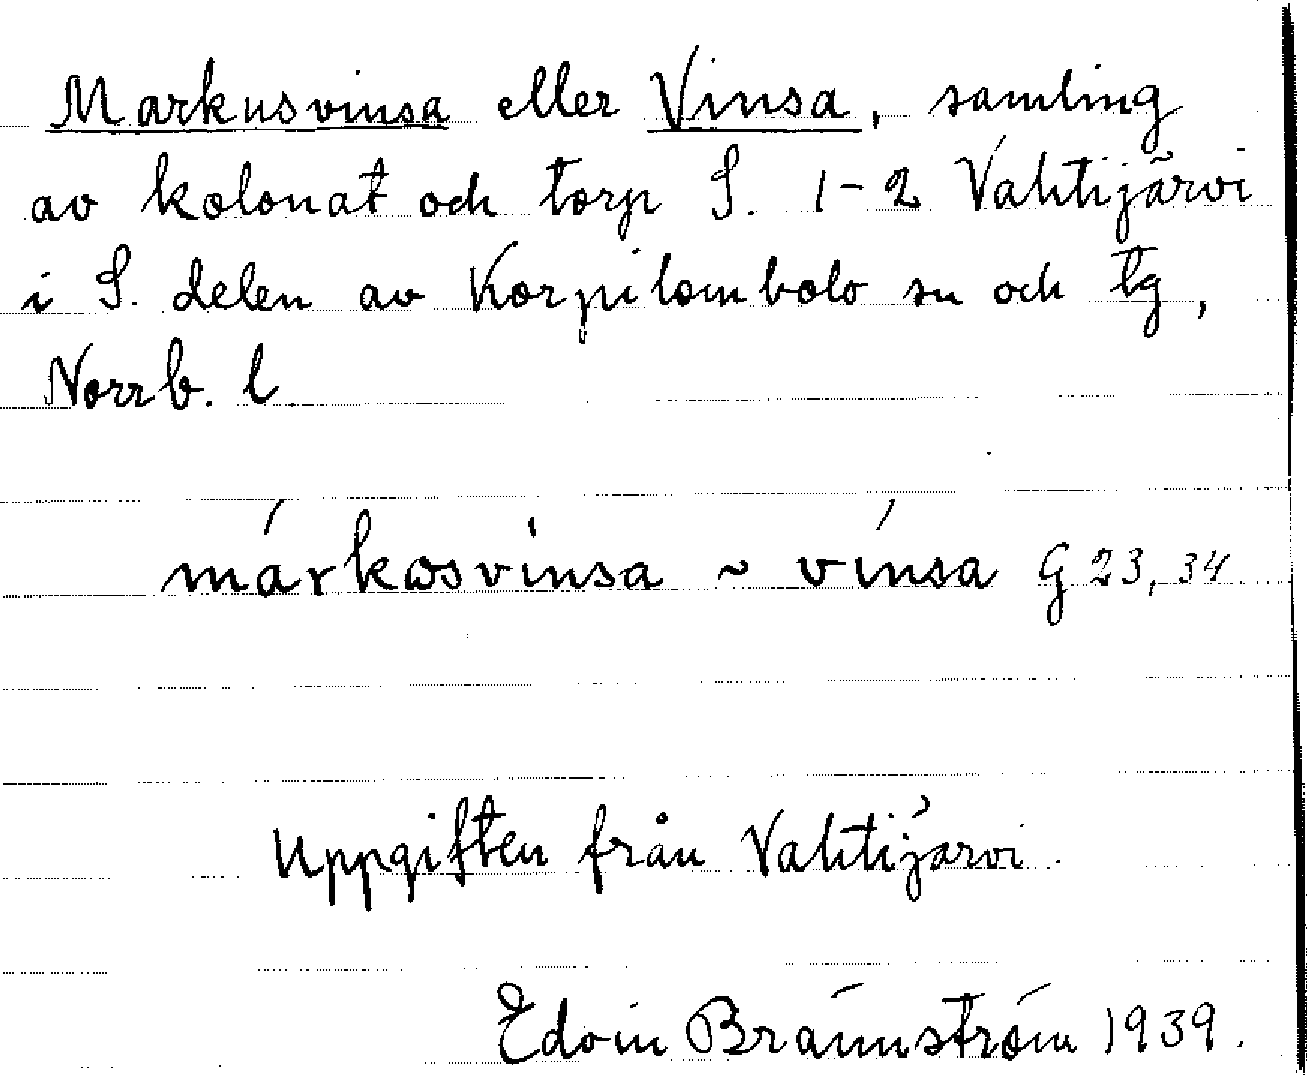 Markusvinsa eller Vinsa, samling
av kolonat och torp S. 1-2 Vahtijärvi
i S. delen av Korpilombolo sn och tg,
Norrb. l
márkɷsvinsa ~ vínsa G 23, 34
Uppgiften från Vahtijärvi.
Edvin Brännström 1939.